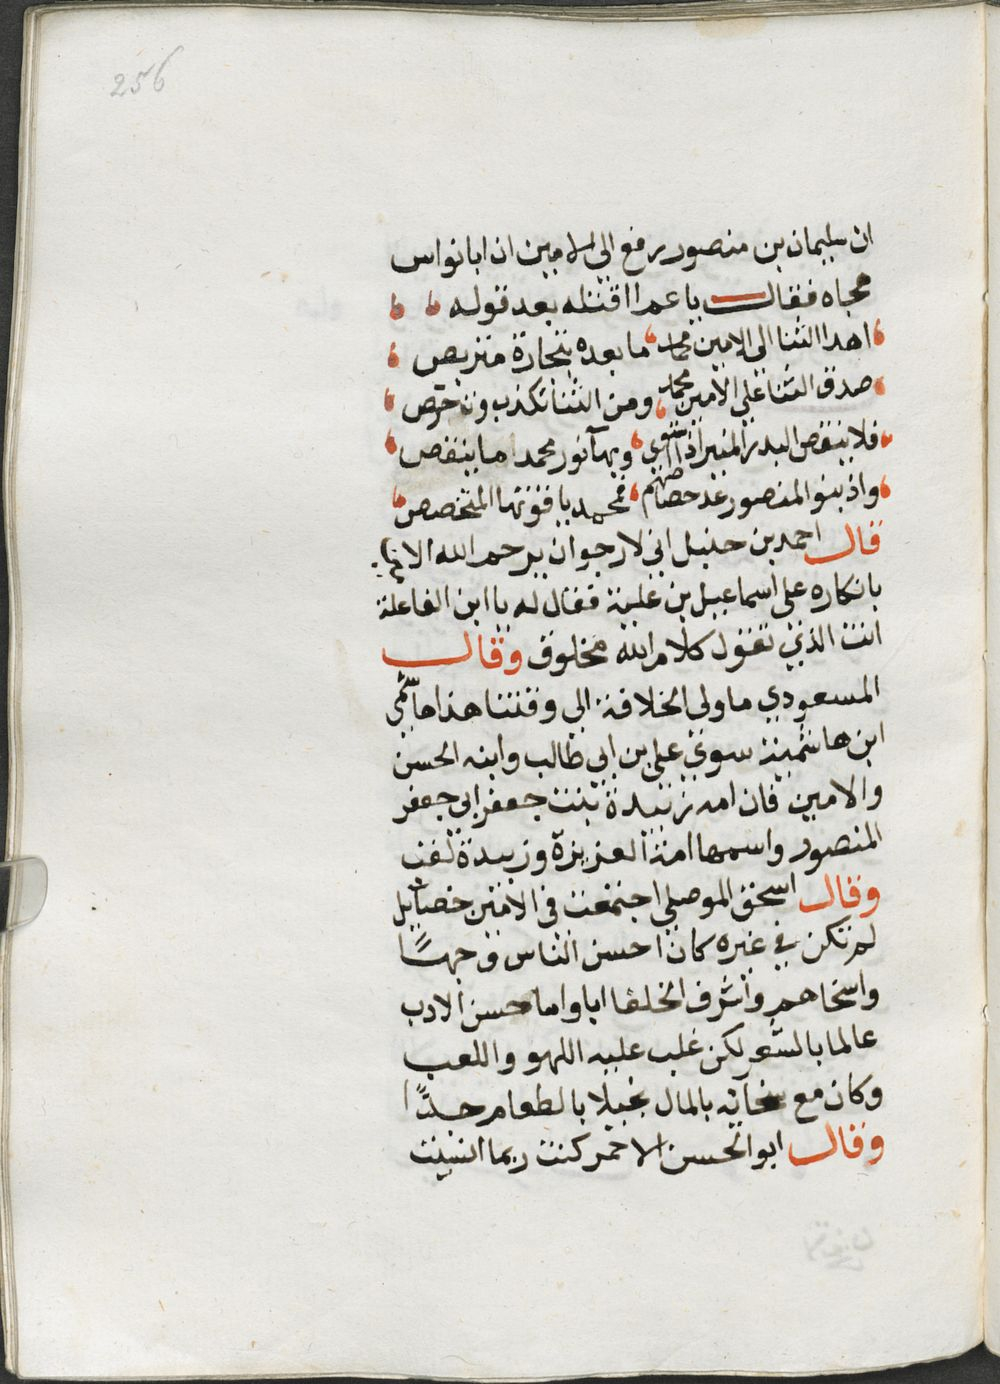 256
ان سليمان بن منصور رفع الى الامين ان ابا نواس
هجاه فقال يا عم ااقتله بعد قوله
اهدا الثنا الى الامين محمد ما بعده بتجارة متربص
صدق الثنا على الامين محمد ومن الثنا تكذب وتخرص
فلا ينقص البدر المنير اذا استوى وبهآ نور محمد ما ينقص
واذ بنو المنصور عد حصاهم فمحمد ياقوتها المتخصص
قال احمد بن حنبل انى لارجو ان يرحم الله الامين
بانكاره على اسماعيل بن علية فقال له يا ابن الفاعلة
انت الذي تقول كلام الله مخلوق وقال
المسعودي ما ولى الخلافة الى وقتنا هذا هاشمي
ابن هاشمية سوى على بن ابى طالب وابنه الحسن
والامين فان امه زبيدة بنت جعفر ابى جعفر
المنصور واسمها امة العزيزة وزبيدة لقب
وقال اسحق الموصلي اجتمعت فى الامين خصايل
لم تكن في غيره كان احسن الناس وجهًا
واسخاهم واشرف الخلفا ابا واما حسن الادب
عالما بالشعر لكن غلب عليه اللهو واللعب
وكان مع سخآئه بالمال بخيلا بالطعام جدًا
وقال ابو الحسن الاحمر كنت ربما انسيت